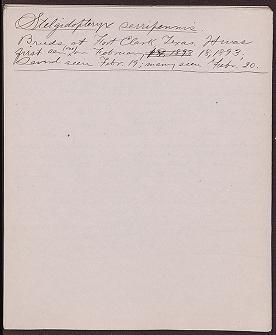 Stelgidopteryx serripennis
Breeds at Fort Clark, Texas. It was
first seen (one) on February 18, 1893 18, 1893.
Several seen Febr. 19; many seen Febr. 20.